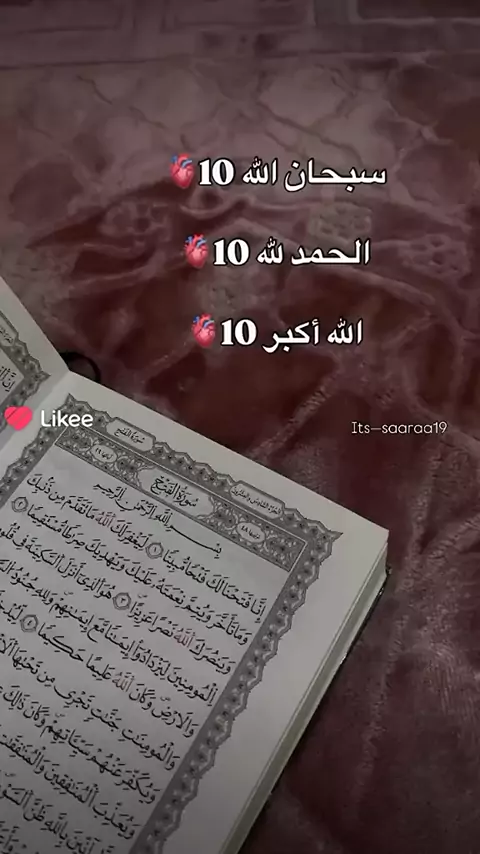 سبحان الله 10🫀
الحمد لله 10🫀
الله أكبر 10🫀
Likee
Its—saaraa19
سورة الفتح
سُورَةُ الفَتْحِ
بِسْمِ اللَّهِ الرَّحْمَٰنِ الرَّحِيمِ
إِنَّا فَتَحْنَا لَكَ فَتْحًا مُّبِينًا ١ لِّيَغْفِرَ لَكَ اللَّهُ مَا تَقَدَّمَ مِن ذَنۢبِكَ
وَمَا تَأَخَّرَ وَيُتِمَّ نِعْمَتَهُۥ عَلَيْكَ وَيَهْدِيَكَ صِرَٰطًا مُّسْتَقِيمًا ٢
وَيَنصُرَكَ اللَّهُ نَصْرًا عَزِيزًا ٣ هُوَ الَّذِي أَنزَلَ السَّكِينَةَ فِي قُلُوبِ
الْمُؤْمِنِينَ لِيَزْدَادُوا إِيمَٰنًا مَّعَ إِيمَٰنِهِمْ وَلِلَّهِ جُنُودُ
وَالْأَرْضِ وَكَانَ اللَّهُ عَلِيمًا حَكِيمًا ٤
وَالْمُؤْمِنَٰتِ جَنَّٰتٍ تَجْرِي مِن تَحْتِهَا
وَيُكَفِّرَ عَنْهُمْ سَيِّـَٔاتِهِمْ وَكَانَ ذَٰلِكَ
وَيُعَذِّبَ الْمُنَٰفِقِينَ وَالْمُنَٰفِقَٰتِ
بِاللَّهِ ظَنَّ السَّوْءِ